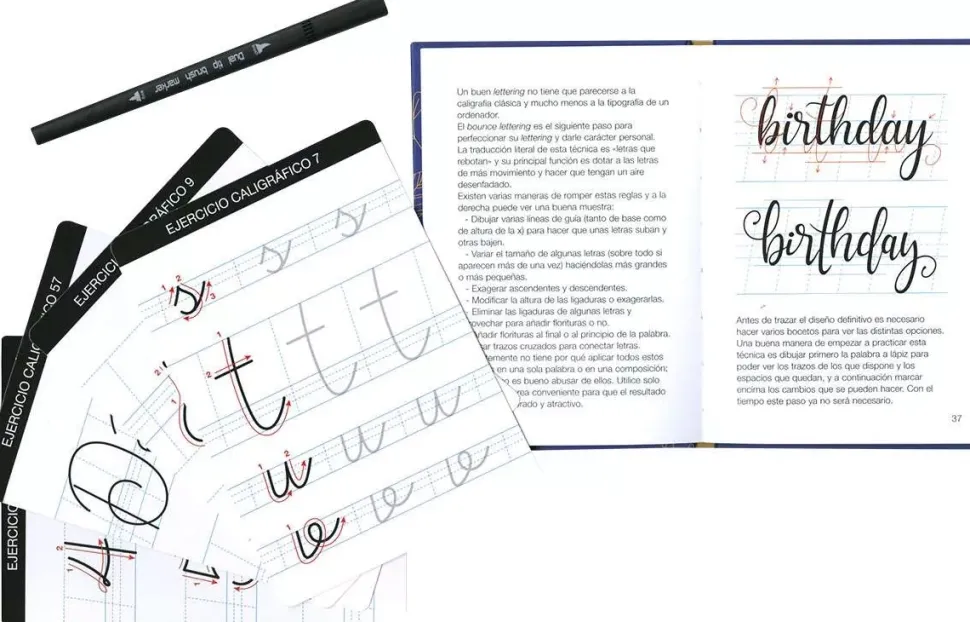 Dual tip brush marker
EJERCICIO CALIGRÁFICO 7
ÁFICO 9
EJERCICIO
CO 57
EJERCICIO CALI
EJERCICIO
s s s
t t t
u u u
v v v
Un buen lettering no tiene que parecerse a la
caligrafía clásica y mucho menos a la tipografía de un
ordenador.
El bounce lettering es el siguiente paso para
perfeccionar su lettering y darle carácter personal.
La traducción literal de esta técnica es «letras que
rebotan» y su principal función es dotar a las letras
de más movimiento y hacer que tengan un aire
desenfadado.
Existen varias maneras de romper estas reglas y a la
derecha puede ver una buena muestra:
- Dibujar varias líneas de guía (tanto de base como
de altura de la x) para hacer que unas letras suban y
otras bajen.
- Variar el tamaño de algunas letras (sobre todo si
aparecen más de una vez) haciéndolas más grandes
o más pequeñas.
- Exagerar ascendentes y descendentes.
- Modificar la altura de las ligaduras o exagerarlas.
- Eliminar las ligaduras de algunas letras y
ovechar para añadir florituras o no.
ñadir florituras al final o al principio de la palabra.
ar trazos cruzados para conectar letras.
mente no tiene por qué aplicar todos estos
en una sola palabra o en una composición;
o es bueno abusar de ellos. Utilice solo
rea conveniente para que el resultado
rado y atractivo.
birthday
birthday
Antes de trazar el diseño definitivo es necesario
hacer varios bocetos para ver las distintas opciones.
Una buena manera de empezar a practicar esta
técnica es dibujar primero la palabra a lápiz para
poder ver los trazos de los que dispone y los
espacios que quedan, y a continuación marcar
encima los cambios que se pueden hacer. Con el
tiempo este paso ya no será necesario.
37